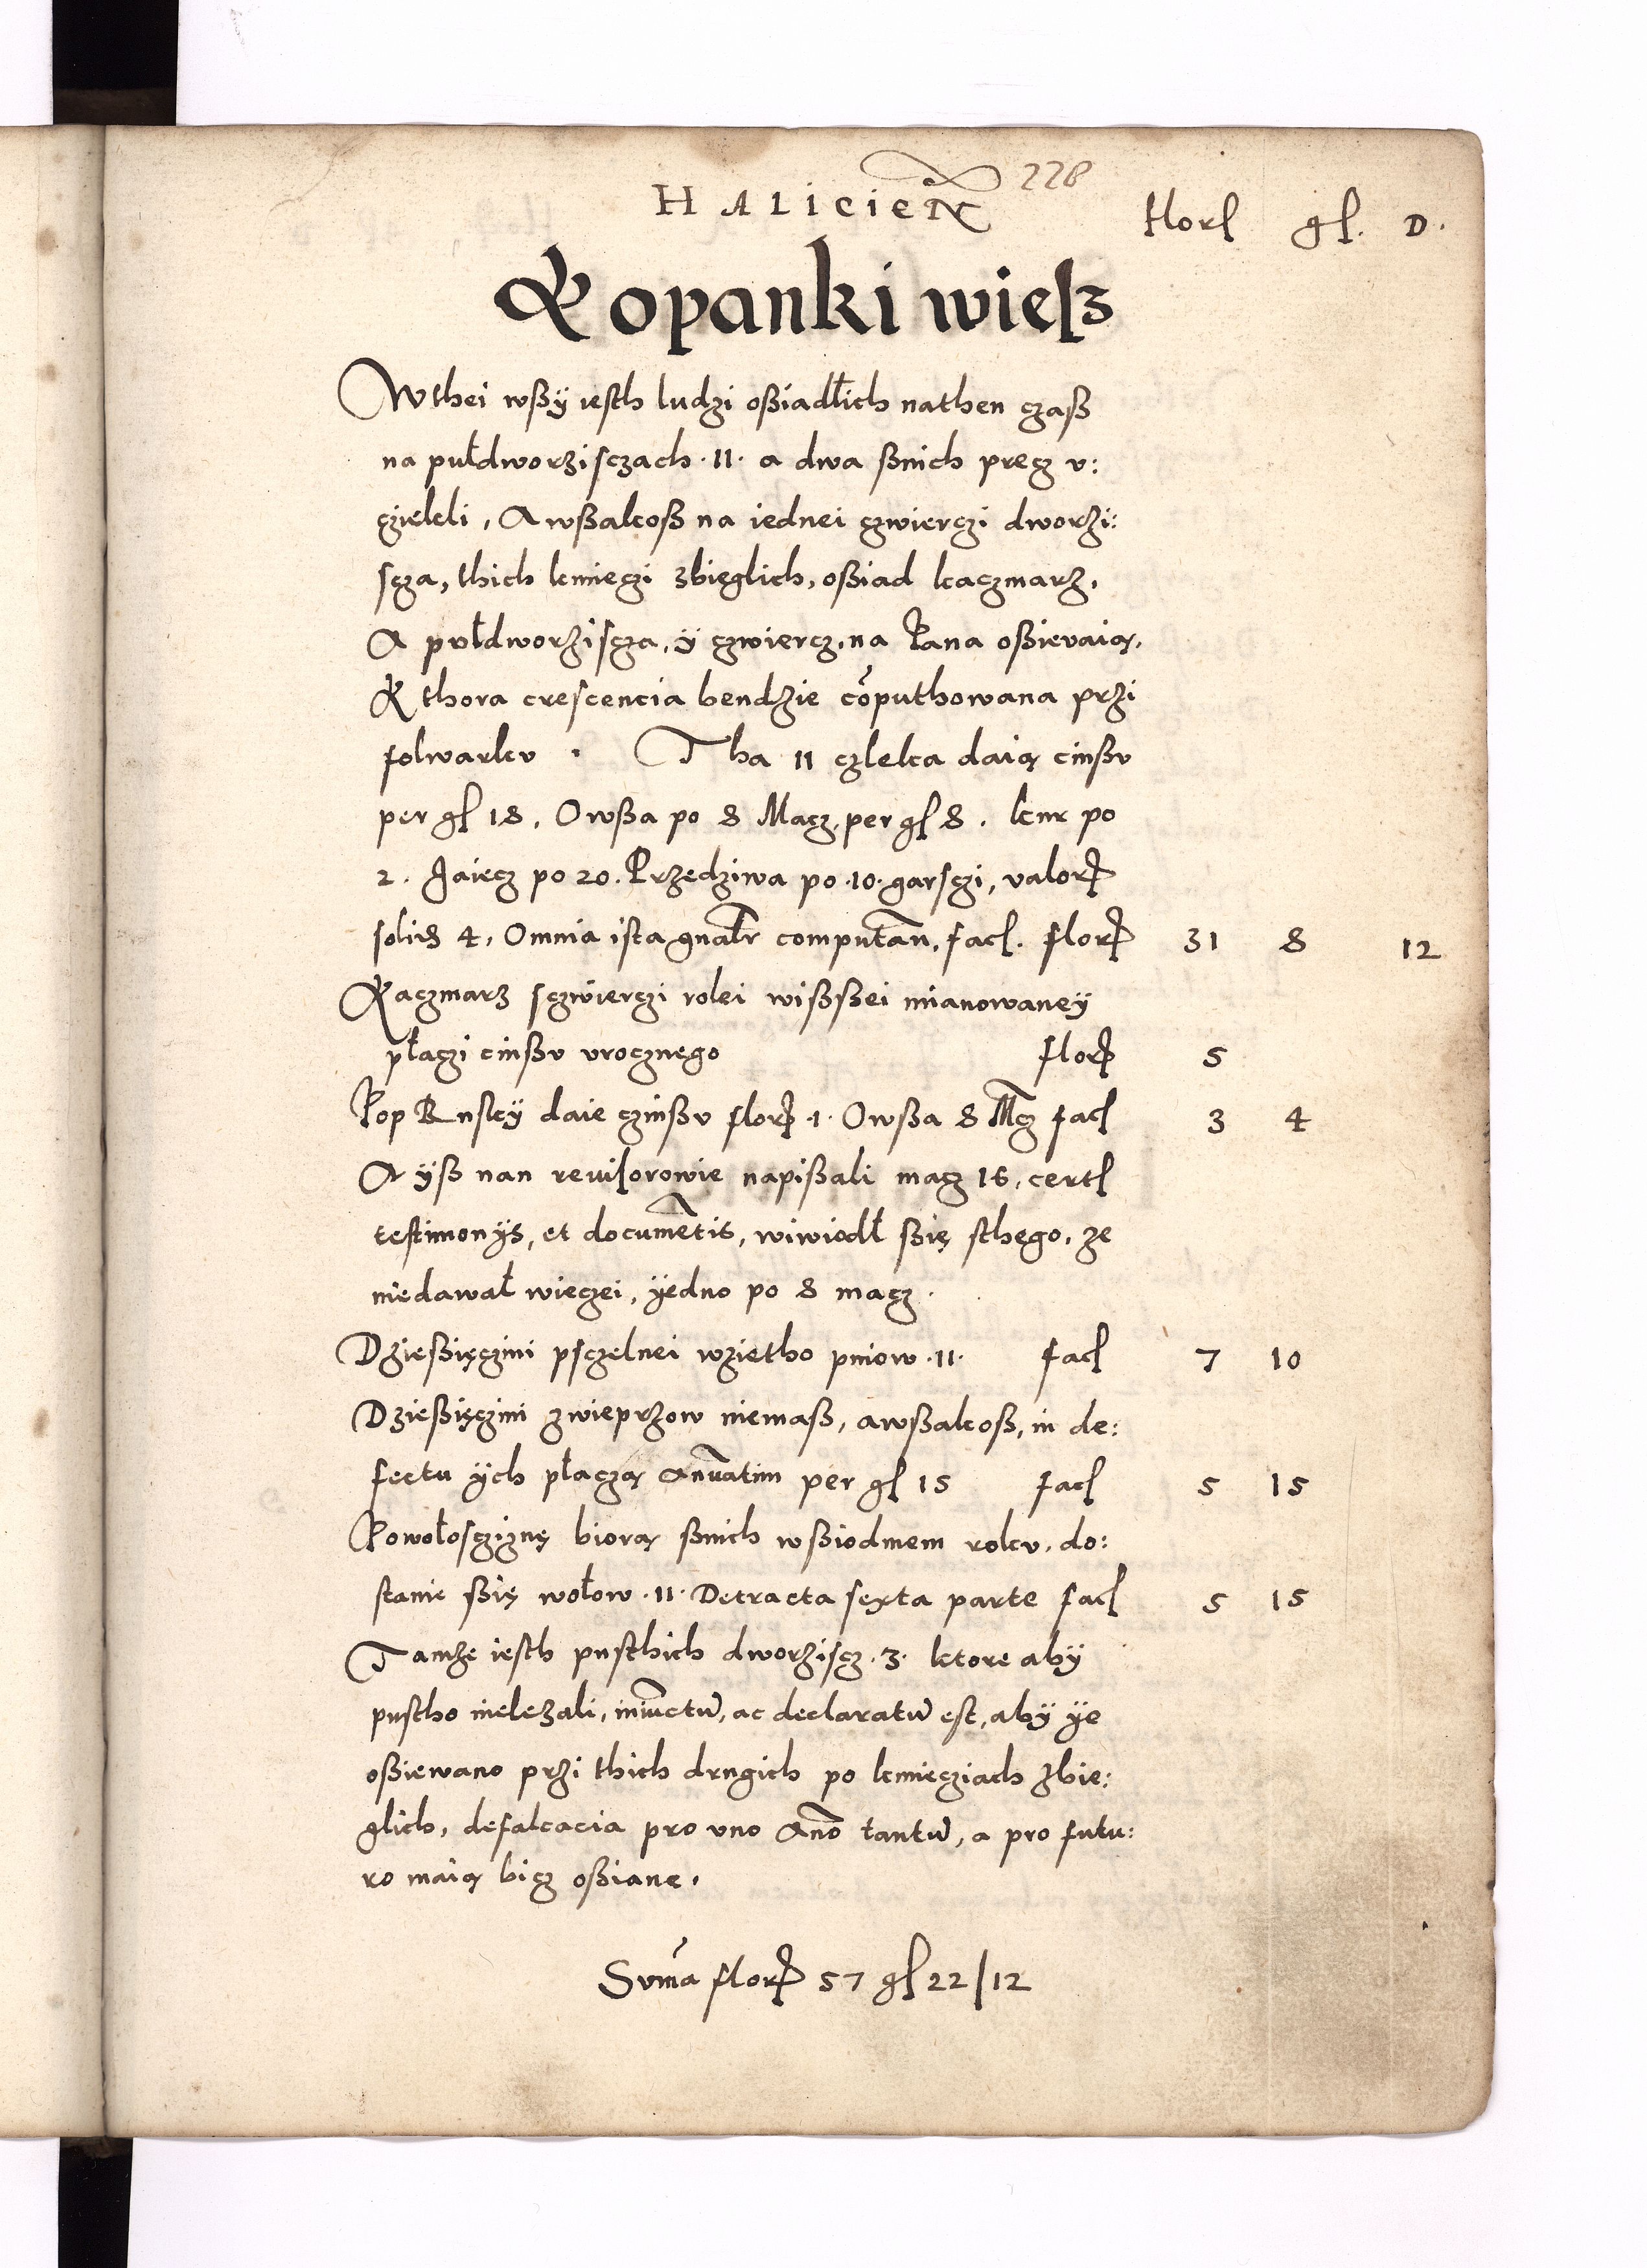 228
HALICIEÑ
Florſ gſ. D.
Kopanki wieſz
Wthei wßÿ iesth ludzi oßiadłich nathen czaß
na pułdworziſczach ·11· a dwa ßnich precz v:
czieleli, A wßakoß na iednei czwierczi dworzi:
scza, thich kmieczi zbieglich, oßiad kaczmarz,
A pvłdworziscza, ÿ czwiercz, na Pana oßievaią,
Kthora crescencia bendzie cõputhowana przi
folwarkv . Tha 11 człeka daią cinßv
per gſ 18, Owßa po 8 Macz, per gſ 8. kur po
2. Jaiecz po 20. Przedziwa po ·10· garsczi, valoꝝ
solid 4, Omnia ista gnałr computañ, facſ. floꝝ 31 8 12
Kaczmarz sczwierczi rolei wißßei mianowaneÿ
płaczi cinßv vrocznego floꝝ 5
Pop Ruskÿ daie czinßv floꝝ ·1· Owßa 8 Mcz facſ 3 4
A ÿß nan reviſorowie napißali macz 16, certſ
testimonÿs, et documẽtis, wiwiodł ßię sthego, ze
niedawał wieczei, ÿedno po 8 macz.
Dzießięczini psczelnei wzietho pniow ·11· facſ 7 10
Dzießięczini zwieprzow niemaß, awßakoß, in de:
fectu ÿch płaczą Anũatim per gſ 15 facſ 5 15
Powołoscziznę biorą ßnich wßiodmem rokv, do:
stanie ßię wołow ·11· Detracta sexta parte facſ 5 15
Tamze iesth pusthich dworziscz ·3· ktore abÿ
pustho nielezali, iniũctũ, ac declaratũ est, abÿ ÿe
oßiewano przi thich drugich po kmiecziach zbie:
glich, defalcacia pro vno Año tantũ, a pro futu:
ro maią bicz oßiane.
Svm̃a floꝝ 57 gſ 22/12